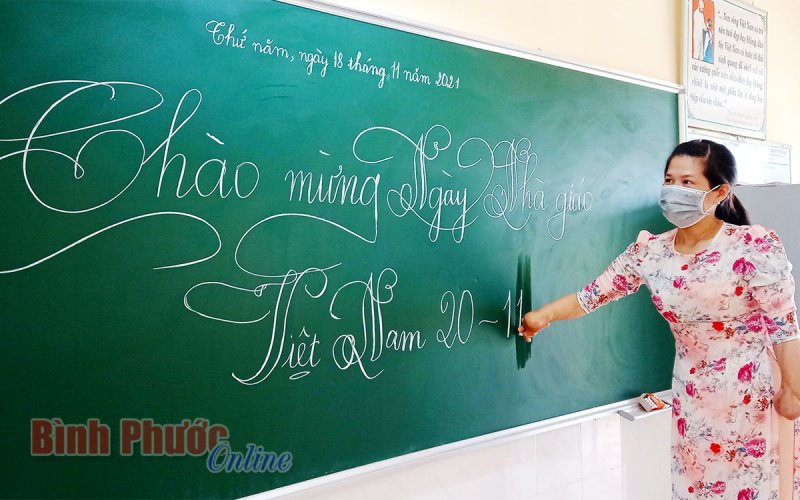 Thứ năm, ngày 18 tháng 11 năm 2021
Chào mừng Ngày Nhà giáo
Việt Nam 20~11
"... Non sông Việt Nam có trở
nên tươi đẹp hay không, dân
tộc Việt Nam có bước tới đài
vinh quang để sánh vai với
các cường quốc năm châu được hay không,
chính là nhờ một phần lớn ở công học
tập của các cháu..."
Bình Phước
Online